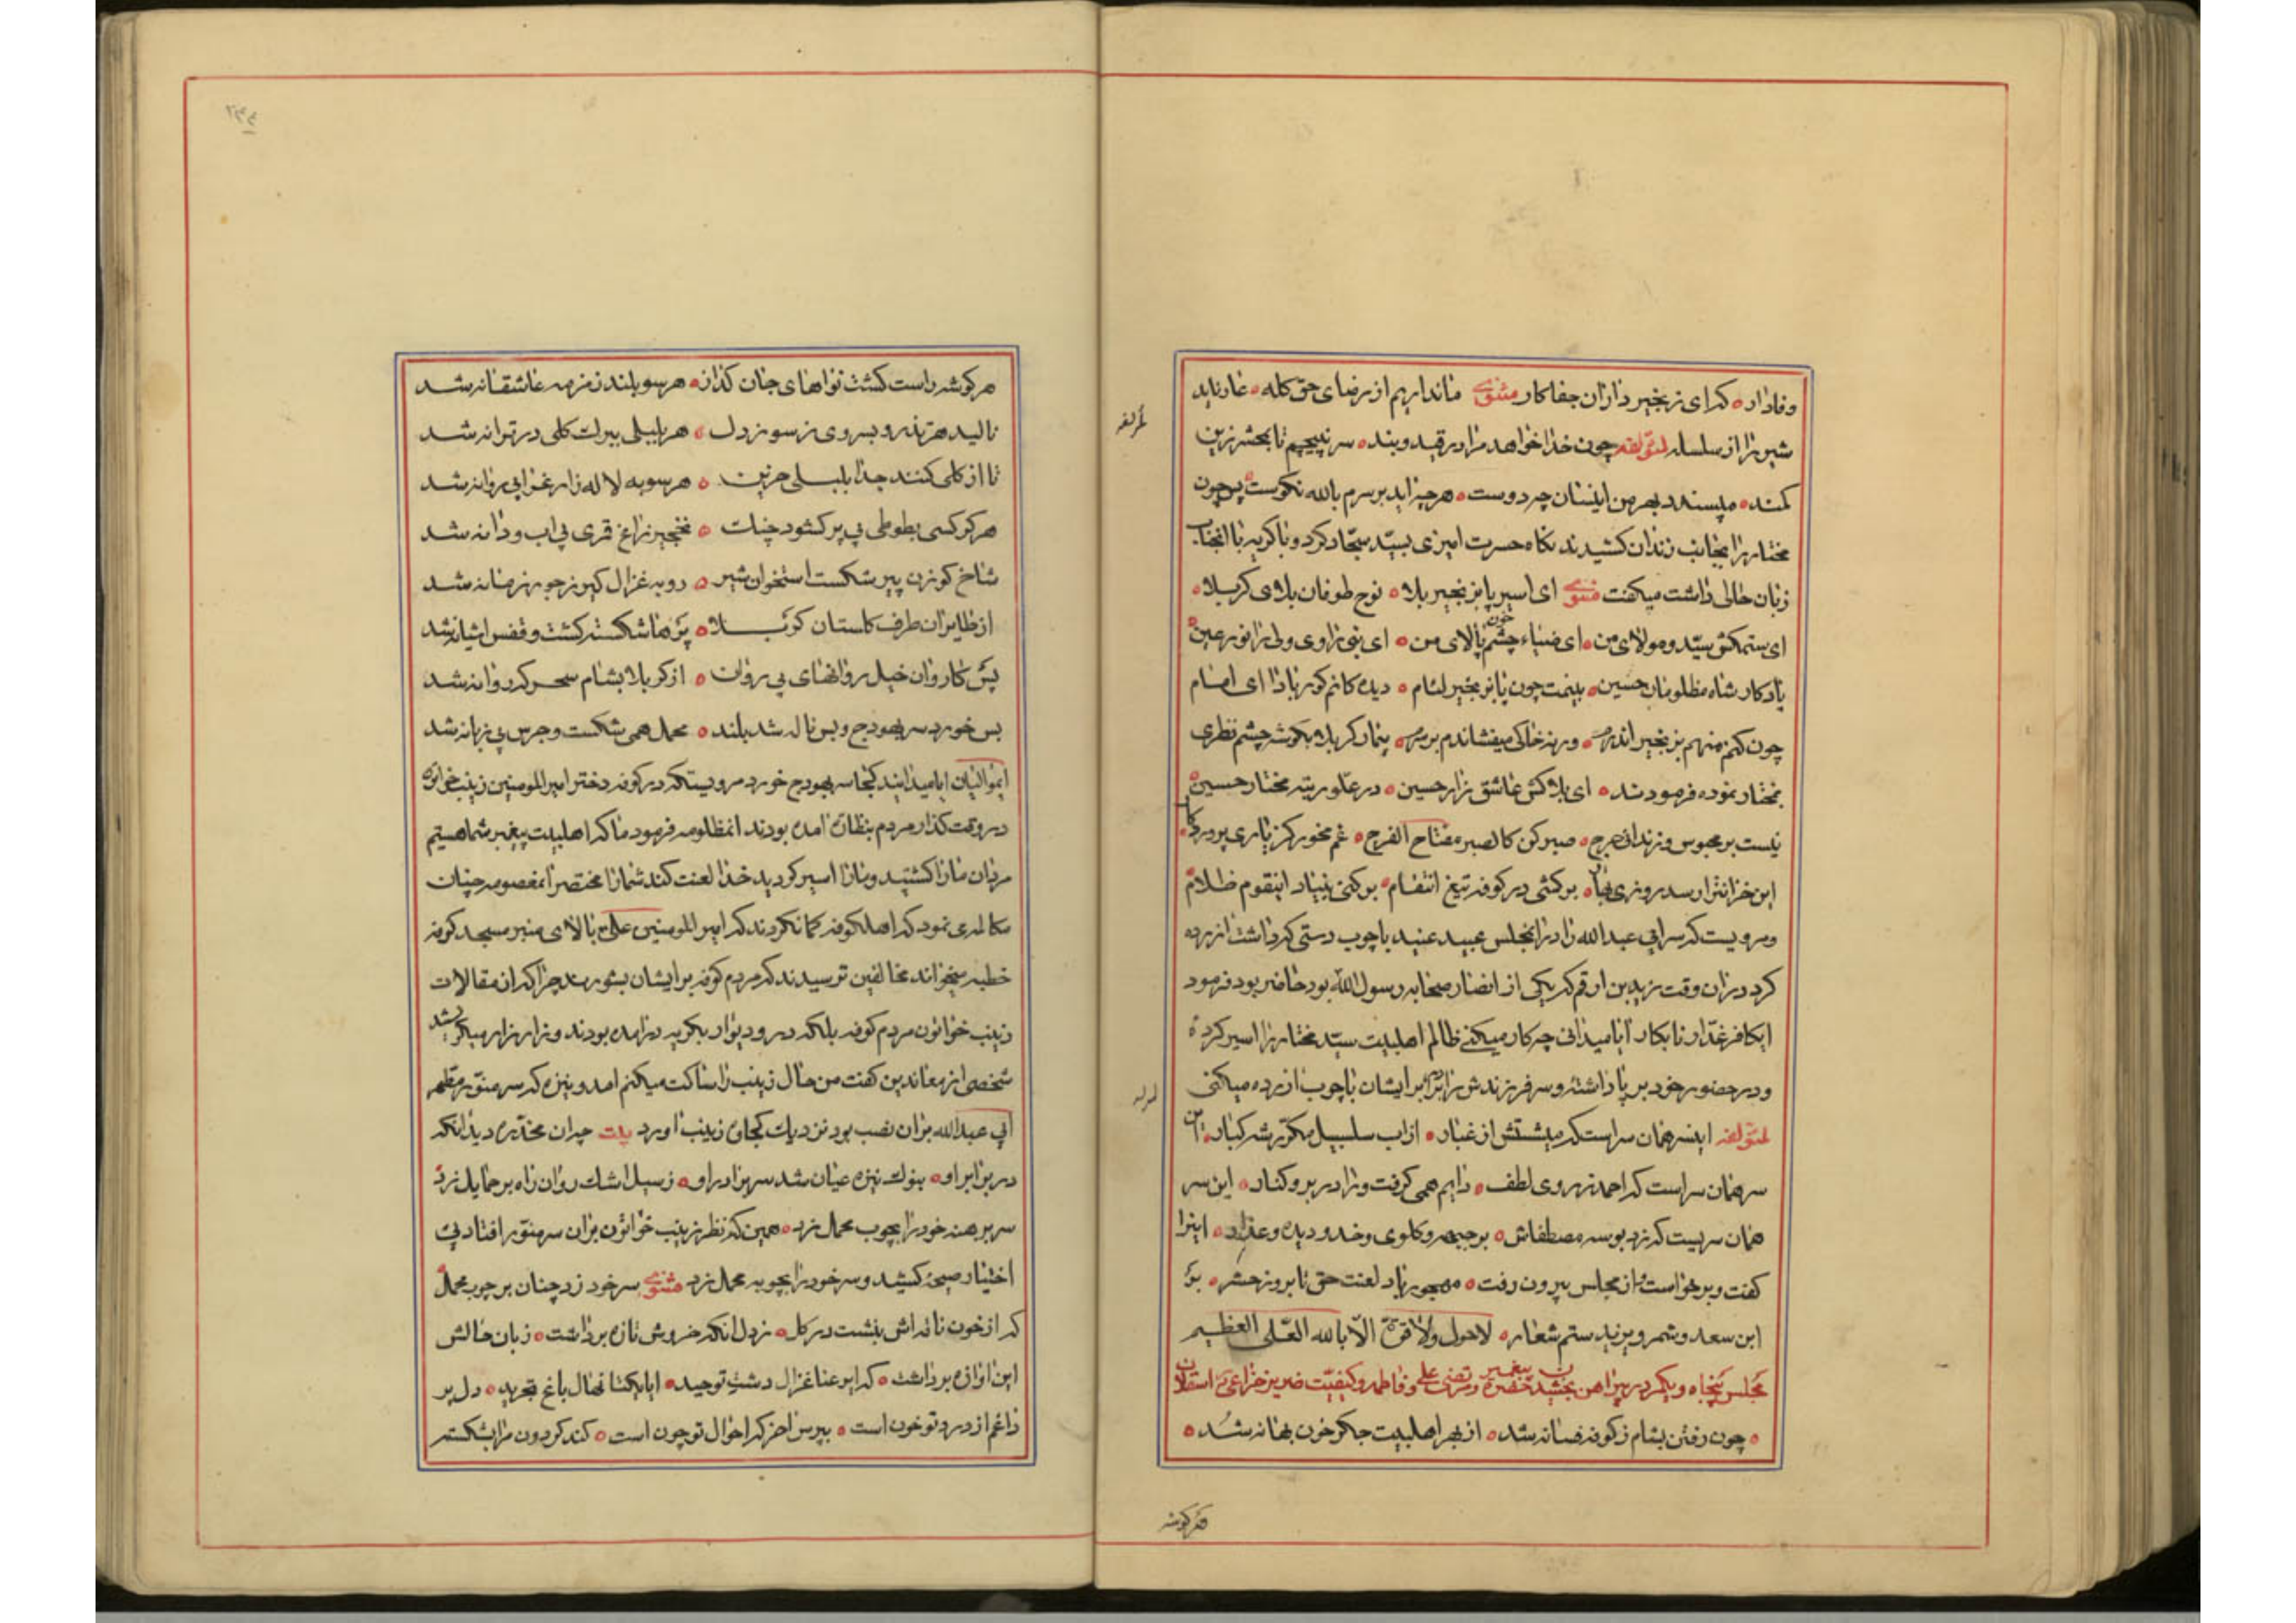 وفادار ه که ای زنجیر داران جفا کار مثنوی ما نداریم از رضای حق کله ه عار ناید
شیر را از سلسله لمؤلفه چون خدا خواهد مرا در قید و بند ه سر نپیچیم تا بحشر زین
کمند ه میپسندد بهر من اینسان چه دوست ه هر چه اید بر سرم بالله نکوست ه پس چون
مختار را بجانب زندان کشیدند نکاه حسرت امیزی بسید سجاد کرد و با کریه با انجناب
زبان حالی داشت میکفت مثنوی ای اسیر پا بزنجیر بلا ه نوح طوفان بلای کربلا ه
ای ستمکش سید و مولای من ه ای ضیاء چشم خون پالای من ه ای نبی را وی ولی را نور عین ه
یادکار شاه مظلومان حسین ه بینمت چون پا بزنجیر لئام ه دیده کانم کور بادا ای امام
چون کنم منهم بزنجیر اندرم ه ورنه خاکی میفشاندم بر سرم ه بیمار کربلا بکوشه چشم نظری
بمختار نموده فرمودند ه ای بلاکش عاشق زار حسین ه در علو رتبه مختار حسین ه
نیست بر محبوس و زندانی حرج ه صبر کن کالصبر مفتاح الفرج ه غم مخور کز یاری پروردکار ه
این خزانترا رسد روزی بهار ه برکشی در کوفه تیغ انتقام ه برکنی بنیاد اینقوم ظلام
و مرویست که سر ابی عبدالله را در انمجلس عبید عنید با چوب دستی که داشت ازرده
کرد در ان وقت زید بن ارقم که یکی از انصار صحابه رسول الله بود حاضر بود فرمود
ایکافر غدار نابکار ایا میدانی چه کار میکنی ظالم اهلبیت سید مختار را اسیر کرده
و در حضور خود بر پا داشته و سر فرزندش را در برابر ایشان با چوب ازرده میکنی
لمؤلفه اینسر همان سر است که میشستش از غبار ه از اب سلسبیل مکرر شه کبار ه این
سر همان سر است که احمد ز روی لطف ه دایم همی کرفت ورا در بر و کنار ه این سر
همان سریست که زد بوسه مصطفاش ه بر جبهه و کلوی و خد و دیده و عذار ه اینرا
کفت و برخواست و از مجلس بیرون رفت ه مهجور باد لعنت حق تا بروز حشر ه بر
ابن سعد و شمر و یزید ستم شعار ه لاحول ولا قوة الا بالله العلی العظیم
مجلس پنجاه و یکم در پیراهن بخشیدن حضرت پیغمبر و مرتضی علی و فاطمه و کیفیت ضریر خزاعی
ه چون رفتن بشام ز کوفه فسانه شد ه از بهر اهلبیت جکر خون بهانه شد ه
هر کوشه
هر کوشه راست کشت نواهای جان کداز ه هر سو بلند زمزمه عاشقانه شد
نالید هر تذرو بسروی ز سوز دل ه هر بلبلی ببرک کلی در ترانه شد
تا از کلی کنند جدا بلبلی حزین ه هر سو به لاله زار غرابی روانه شد
هر کرکسی بطوطی بی پر کشود چنک ه نخجیر زاغ قمری بی اب و دانه شد
شاخ کوزن پیر شکست استخوان شیر ه روبه غزال کیر ز جور زمانه شد
از طایران طرف کلستان کربلا ه پرها شکسته کشت و قفس اشیانه شد
پس کاروان خیل روانهای بی روان ه از کربلا بشام سحر که روانه شد
بس خورد سر بهودج و بس ناله شد بلند ه محمل همی شکست و جرس بی زبانه شد
ایموالیان ایا میدانید کجا سر بهودج خورد مرویستکه در کوفه دختر امیرالمومنین زینب خواتون
در وقت کذار مردم بنظاره امده بودند انمظلومه فرمود ما که اهلبیت پیغمبر شما هستیم
مردان ما را کشتید و ما را اسیر کردید خدا لعنت کند شما را مختصر انمعصومه چنان
مکالمه ی نمود که اهلکوفه کمان کردند که امیرالمومنین علی بالای منبر مسجد کوفه
خطبه میخواند مخالفین ترسیدند که مردم کوفه بر ایشان بشورند چرا که از مقالات
زینب خواتون مردم کوفه بلکه در و دیوار بکریه درامده بودند و زار زار میکریستند
شخصی از معاندین کفت من حال زینب را ساکت میکنم امد و نیزه که سر منور مطهر
ابی عبدالله بران نصب بود نزدیک کجاوه زینب اورد بیت چه ان مخدره دید انکه
در برابر او ه بنوک نیزه عیان شد سر برادر او ه ز سیل اشک روان راه بر حمایل زد
سر برهنه خود را بچوب محمل زد ه همین که نظر زینب خواتون بران سر منور افتاد بی
اختیار صیحه کشید و سر خود را بچوبه محمل زد مثنوی سر خود زد چنان بر چوب محمل ه
که از خون ناقه اش بنشست در کل ه ز دل انکه خروش تازه برداشت ه زبان حالش
این اوازه برداشت ه که ای رعنا غزال دشت توحید ه ایا یکتا نهال باغ تجرید ه دل پر
داغم از درد تو خون است ه بپرس اخر که احوال تو چون است ه کند کردون مرا بشکسته